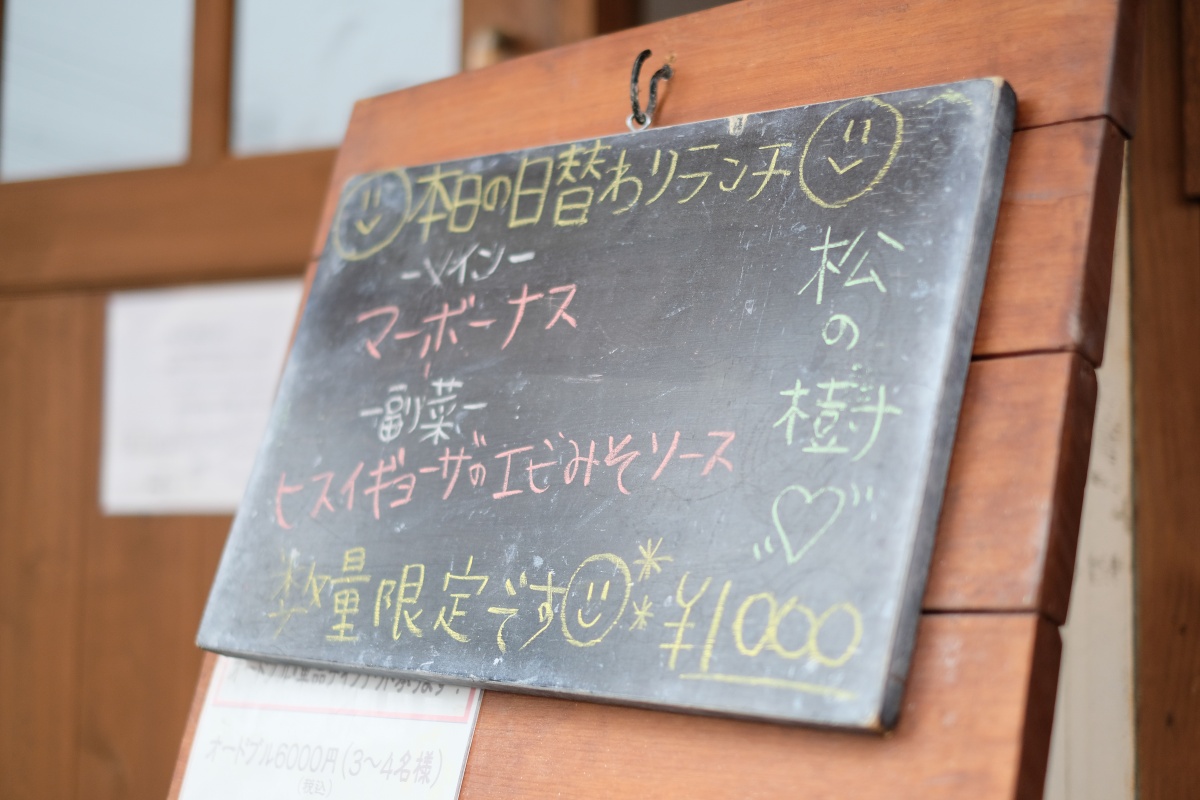 本日の日替わりランチ
-メイン-
マーボーナス
-副菜-
ヒスイギョーザのエビみそソース
数量限定です
¥1000
松の樹
オードブル6000円(3～4名様)
(税込)